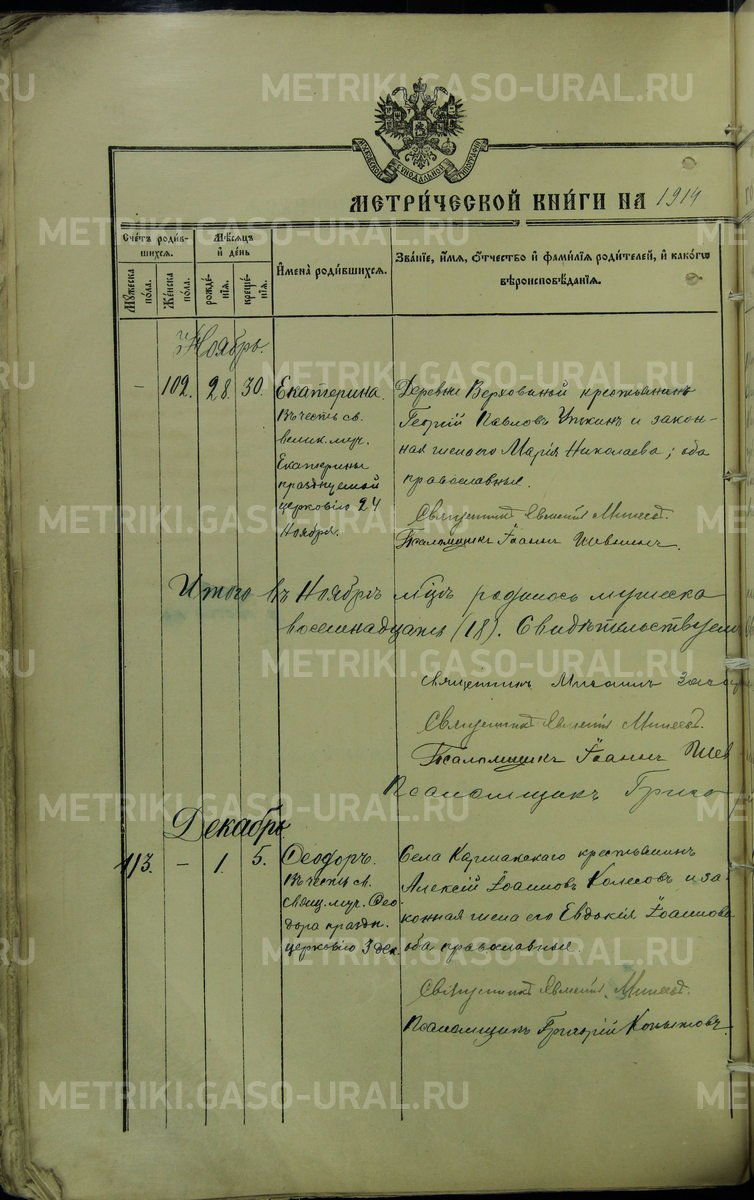 МЕТРИ́ЧЕСКОЙ КНИ́ГИ НА 1914
Сче́тъ роди́в-
шихся.
Му́жеска по́ла.
Же́нска по́ла.
Мѣ́сяцъ и҆ де́нь
рожде́нїя.
креще́нїя.
И҆мена̀ роди́вшихся.
Зва́нїе, и҆́мя, ѻ҆́тчество и҆ фами́лїя роди́телей, и҆ како́гѡ
вѣроисповѣ́данїя.
Ноябрь.
– 102. 28. 30. Екатерина.
Въ честь св.
велик. муч.
Екатерины
празднуемой
церковiю 24
Ноября.
Деревни Верховиной крестьянинъ
Георгiй Павловъ и закон-
ная жена его Марiя Николаева; оба
православные.
Священникъ
Псаломщикъ Iоаннъ
Итого въ Ноябрѣ мцѣ родилось мужеска
восемнадцать (18). Свидѣтельствуемъ
священникъ Михаилъ
Священникъ
Псаломщикъ Iоаннъ
Псаломщикъ
Декабрь
113. – 1. 5. Ѳеодоръ.
Въ честь св.
свящ. муч. Ѳео-
дора праздн.
церковiю 3 дек.
Села крестьянинъ
Алексiй Iоанновъ Колесовъ и за-
конная жена его Евдокiя Iоаннова
оба православные
Священникъ
Псаломщикъ Григорiй Копытовъ
METRIKI.GASO-URAL.RU